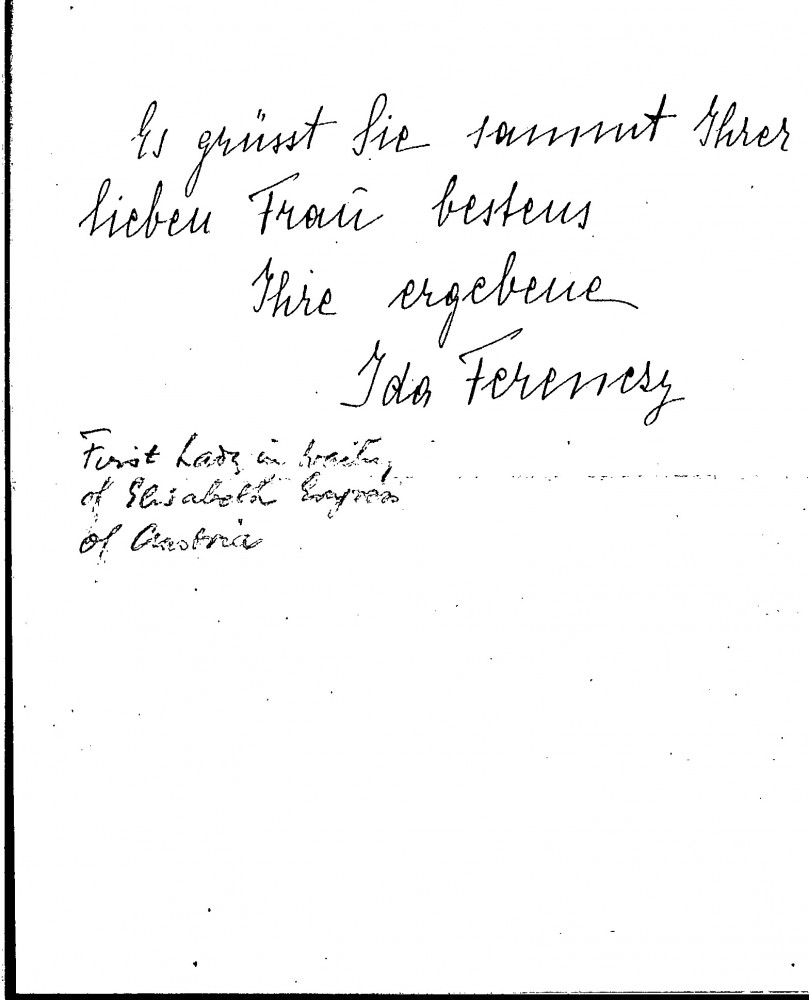 Es grüsst Sie sammt Ihrer
lieben Frau bestens
Ihre ergebene
Ida Ferenczy
First Lady in waiting
of Elisabeth Empress
of Austria